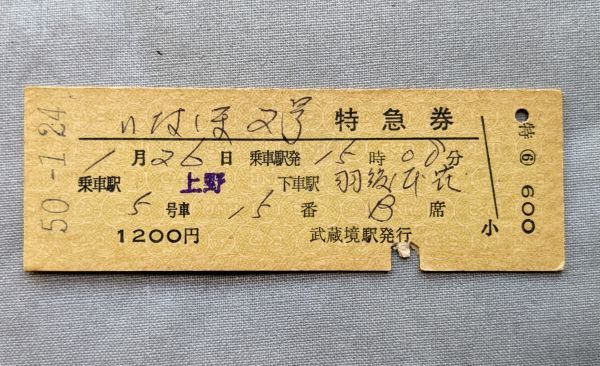 50-1.24
いなほ2号 特急券
1月26日 乗車駅発15時08分
乗車駅 上野 下車駅 羽後本荘
5号車 15番 B席
1200円 武蔵境駅発行
小
特⑥ 600